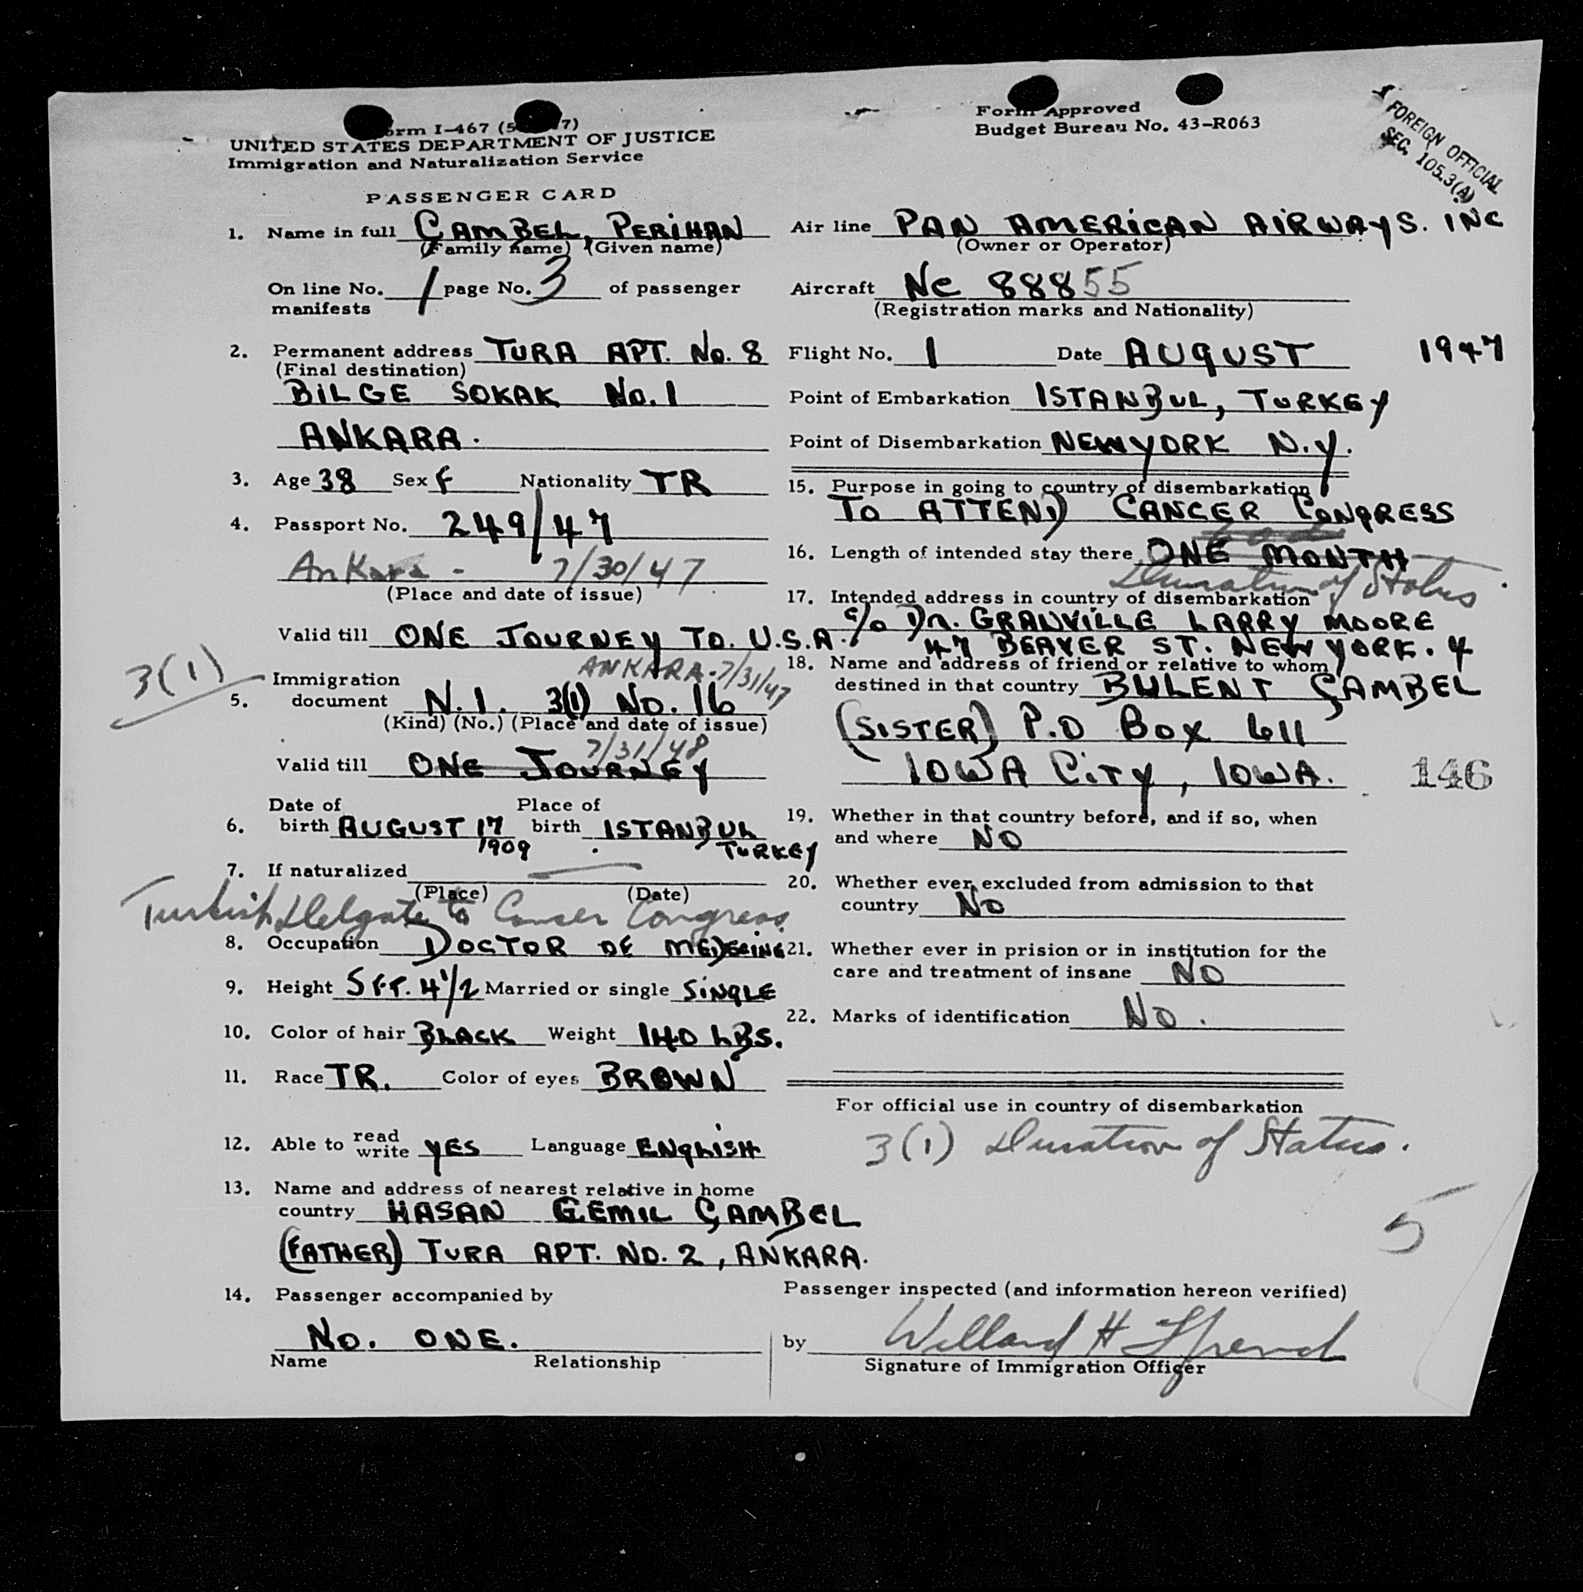 Form I-467
UNITED STATES DEPARTMENT OF JUSTICE
Immigration and Naturalization Service
PASSENGER CARD
Form Approved
Budget Bureau No. 43-R063
FOREIGN OFFICIAL
SEC. 105.3(A)
1. Name in full ÇAMBEL, PERIHAN
(Family name) (Given name)
On line No. 1 page No. 3 of passenger
manifests
2. Permanent address TURA APT. No. 8
(Final destination)
BILGE SOKAK No. 1
ANKARA.
3. Age 38 Sex F Nationality TR
4. Passport No. 249/47
Ankara - 7/30/47
(Place and date of issue)
Valid till ONE JOURNEY TO. U.S.A.
3(1)
ANKARA. 7/31/47
Immigration
5. document N.I. 3(1) No. 16
(Kind) (No.) (Place and date of issue)
7/31/48
Valid till ONE JOURNEY
Date of Place of
6. birth AUGUST 17 birth ISTANBUL
1909 TURKEY
7. If naturalized —
(Place) (Date)
Turkish Delgate to Cancer Congress
8. Occupation DOCTOR OF MEDECINE
9. Height 5 FT. 4 1/2 Married or single SINGLE
10. Color of hair BLACK Weight 140 LBS.
11. Race TR. Color of eyes BROWN
12. Able to read write YES Language ENGLISH
13. Name and address of nearest relative in home
country HASAN GEMIL ÇAMBEL
(FATHER) TURA APT. NO. 2, ANKARA.
14. Passenger accompanied by
NO. ONE.
Name Relationship
Air line PAN AMERICAN AIRWAYS. INC
(Owner or Operator)
Aircraft NC 88855
(Registration marks and Nationality)
Flight No. 1 Date AUGUST 1947
Point of Embarkation ISTANBUL, TURKEY
Point of Disembarkation NEWYORK N.Y.
15. Purpose in going to country of disembarkation
TO ATTEND CANCER CONGRESS
16. Length of intended stay there ONE MONTH
Duration of Status.
17. Intended address in country of disembarkation
c/o Dr. GRANVILLE LARRY MOORE
47 BEAVER ST. NEW YORK. 4
18. Name and address of friend or relative to whom
destined in that country BULENT ÇAMBEL
(SISTER) P.O BOX 611
IOWA CITY, IOWA.
146
19. Whether in that country before, and if so, when
and where NO
20. Whether ever excluded from admission to that
country NO
21. Whether ever in prision or in institution for the
care and treatment of insane NO
22. Marks of identification NO.
For official use in country of disembarkation
3(1) Duration of Status.
5
Passenger inspected (and information hereon verified)
by Willard H
Signature of Immigration Officer